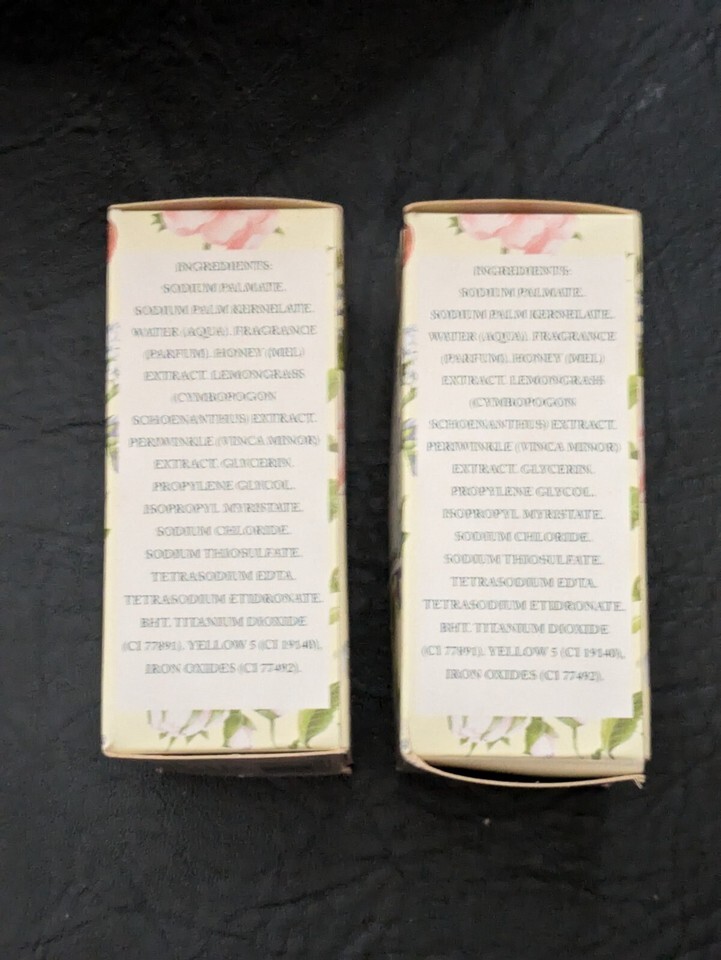 INGREDIENTS:
SODIUM PALMATE.
SODIUM PALM KERNELATE.
WATER (AQUA). FRAGRANCE
(PARFUM). HONEY (MEL)
EXTRACT. LEMONGRASS
(CYMBOPOGON
SCHOENANTHUS) EXTRACT.
PERIWINKLE (VINCA MINOR)
EXTRACT. GLYCERIN.
PROPYLENE GLYCOL.
ISOPROPYL MYRISTATE.
SODIUM CHLORIDE.
SODIUM THIOSULFATE.
TETRASODIUM EDTA.
TETRASODIUM ETIDRONATE.
BHT. TITANIUM DIOXIDE
(CI 77891). YELLOW 5 (CI 19140).
IRON OXIDES (CI 77492).
INGREDIENTS:
SODIUM PALMATE.
SODIUM PALM KERNELATE.
WATER (AQUA). FRAGRANCE
(PARFUM). HONEY (MEL)
EXTRACT. LEMONGRASS
(CYMBOPOGON
SCHOENANTHUS) EXTRACT.
PERIWINKLE (VINCA MINOR)
EXTRACT. GLYCERIN.
PROPYLENE GLYCOL.
ISOPROPYL MYRISTATE.
SODIUM CHLORIDE.
SODIUM THIOSULFATE.
TETRASODIUM EDTA.
TETRASODIUM ETIDRONATE.
BHT. TITANIUM DIOXIDE
(CI 77891). YELLOW 5 (CI 19140).
IRON OXIDES (CI 77492).